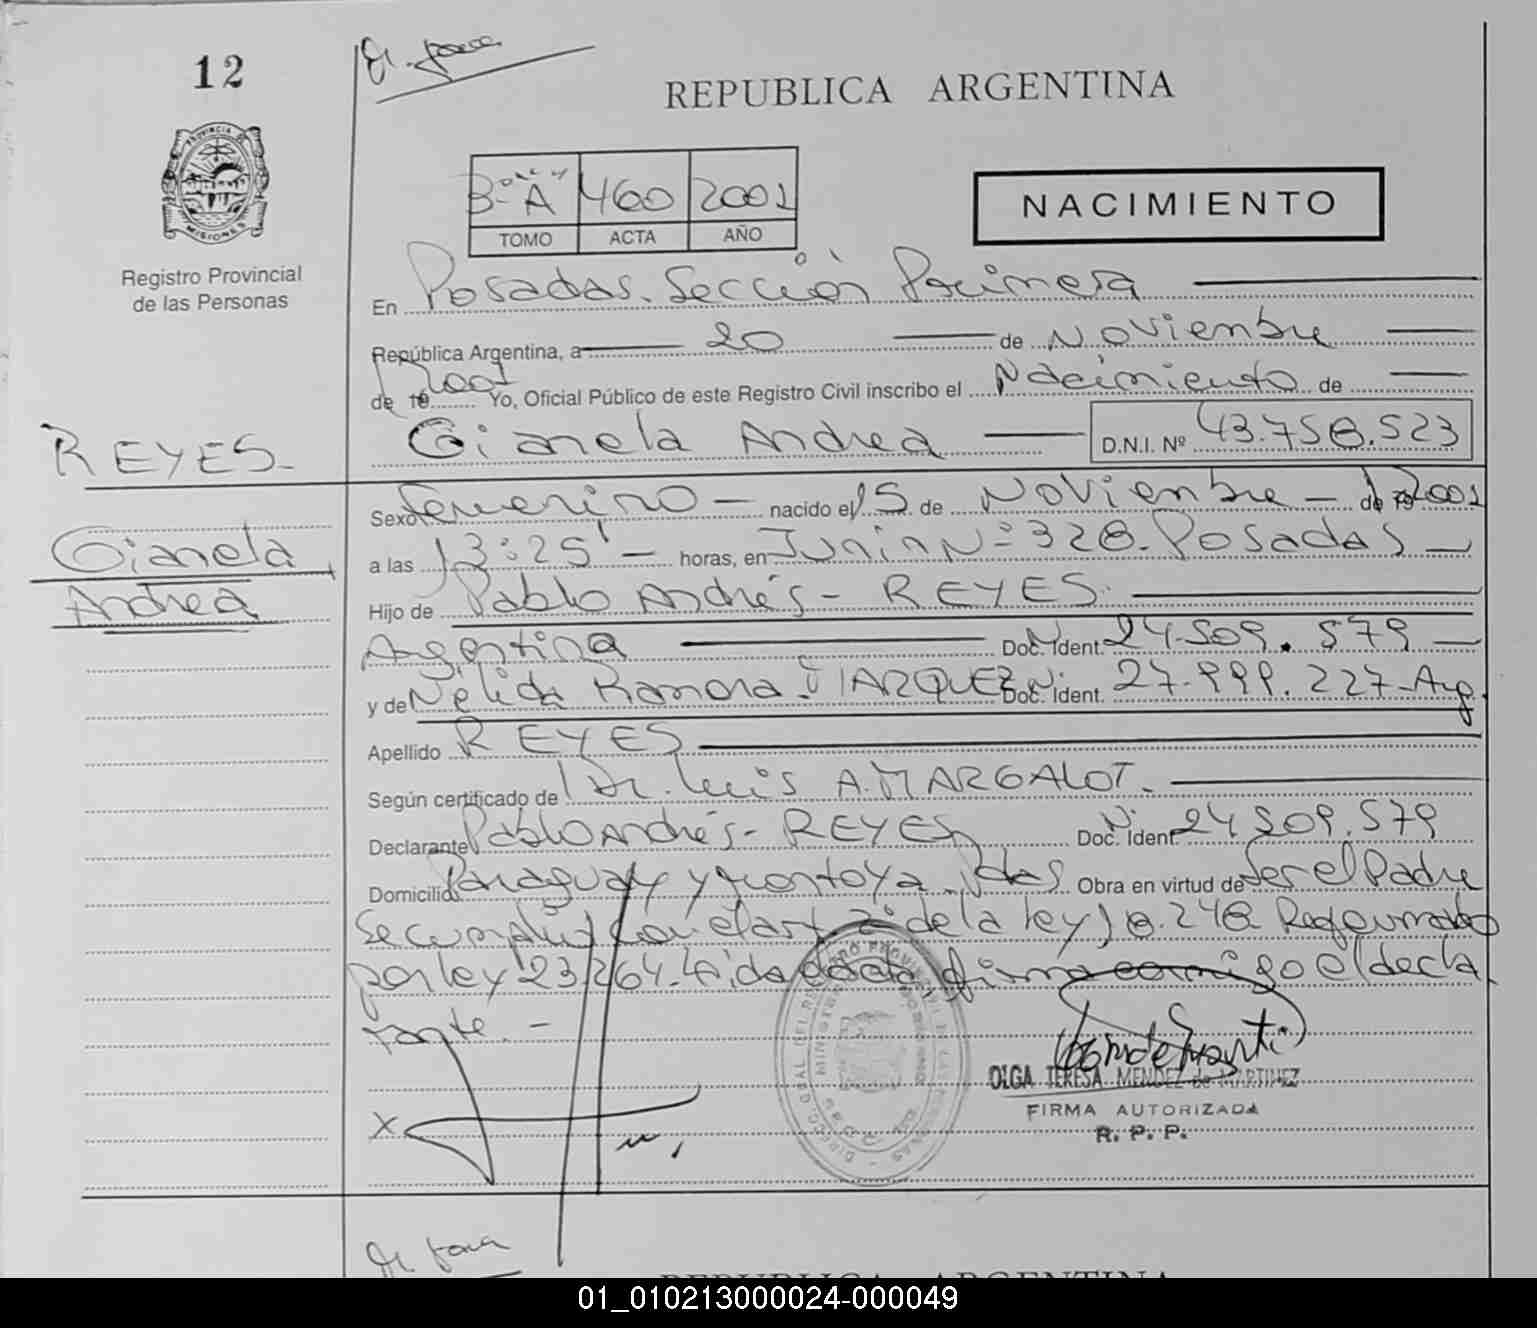 12
REPUBLICA ARGENTINA
3º "A" 460 2001
TOMO ACTA AÑO
NACIMIENTO
PROVINCIA DE
MISIONES
Registro Provincial
de las Personas
En Posadas. Sección Primera
República Argentina, a 20 de Noviembre
de 19 2001 Yo, Oficial Público de este Registro Civil inscribo el Nacimiento de
Gianela Andrea D.N.I. Nº 43.758.523
REYES-
Gianela
Andrea
Sexo femenino - nacido el 15 de Noviembre - de 19 2001
a las 13:25' - horas, en Junin Nº 328. Posadas -
Hijo de Pablo Andrés - REYES.
Argentina Doc. Ident. 24.509.579 -
y de Nélida Ramona MARQUEZ Doc. Ident. 27.999.227-Arg.
Apellido REYES
Según certificado de Dr. Luis A. MARGALOT.
Declarante Pablo Andrés - REYES Doc. Ident. 24.509.579
Domicilio Paraguay y Montoya. Pdas Obra en virtud de Ser el Padre
Se cumplió con el art 2º de la ley 18.248 Reformado
por ley 23.264. Leída el acta firma conmigo el decla
rante. -
X
OLGA TERESA MENDEZ de MARTINEZ
FIRMA AUTORIZADA
R. P. P.
REPUBLICA ARGENTINA
01_010213000024-000049